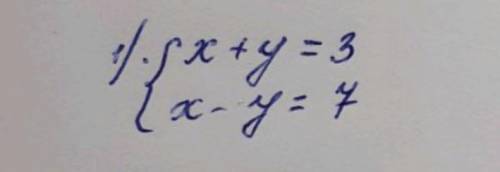 1). { x + y = 3
x - y = 7